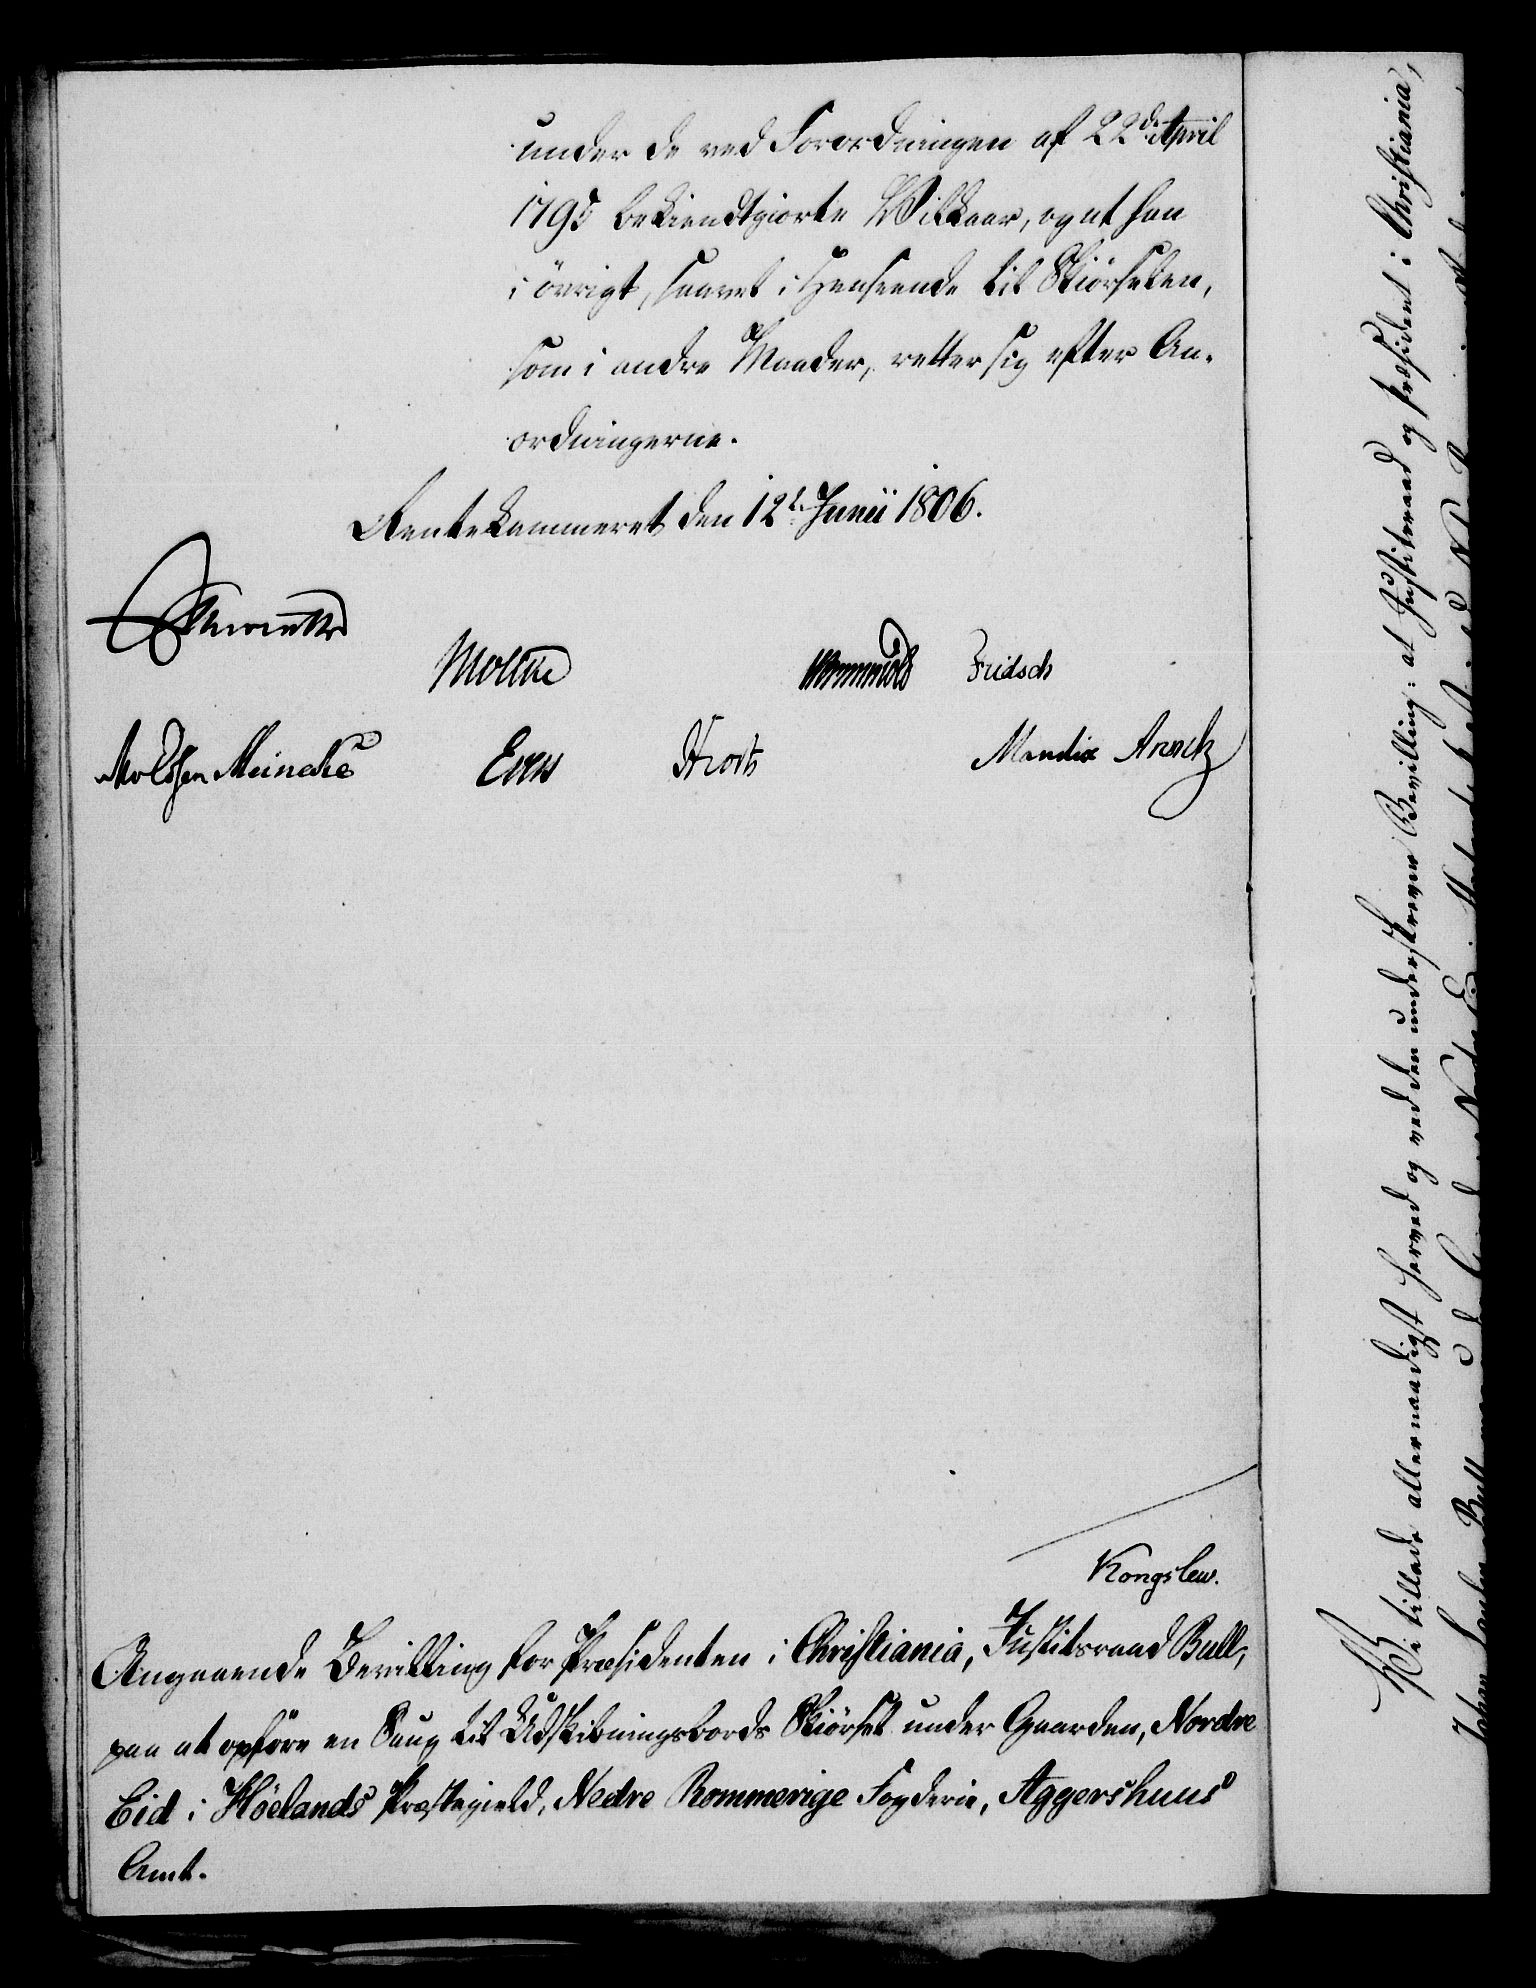 under de ved Forordningen af 22de April
1795 bekiendtgiorte Vilkaar, og at han
i övrigt, saavel i Henseende til Skiørselen,
som i andre Maader, retter sig efter An-
ordningerne.
Rentekammeret den 12te Junii 1806.
Moltke Wormskiold Fridsch
Meincke Eers Horts Mandix Arentz
Kongslew.
Angaaende Bevilling for Præsidenten i Christiania, Justitsraad Bull,
paa at opföre en Saug til Udskibningsbords Skiørsel under Gaarden, Nordre
Eid i Höelands Præstegield, Nedre Rommerige Fogderie, Aggershuus
Amt.
Vi tillade allernaadigst herved og ved den underskrevne Bevilling: at Justitsraad og Præsident i Christiania,